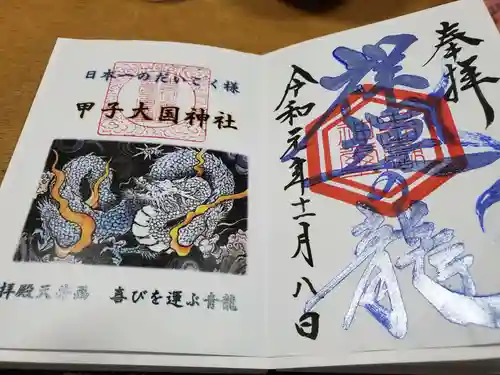 奉拝
祥壇の龍
令和元年十一月八日
日本一のだいこく様
甲子大国神社
拝殿天井画 喜びを運ぶ青龍